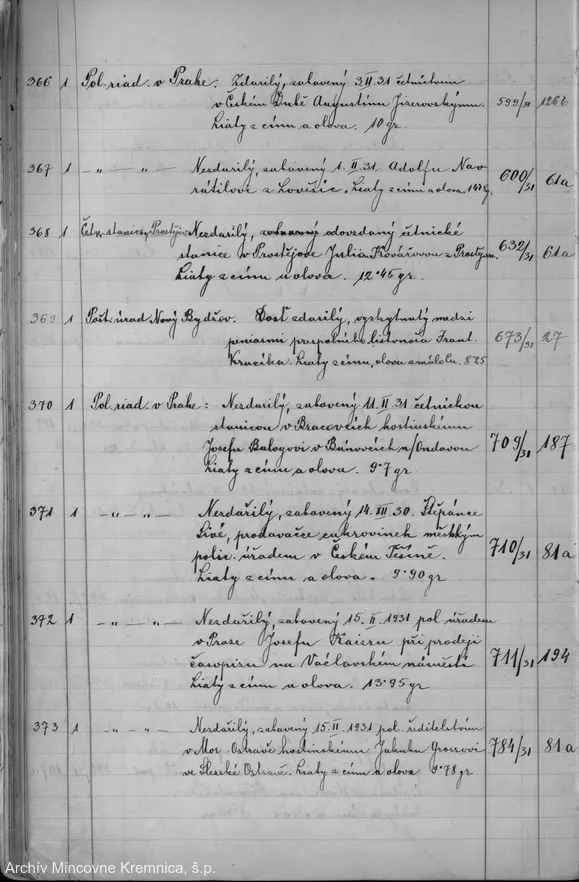 366 1 Pol. riad. v Prahe: Zdarilý, zabavený 3.II.31 četníctvom
v Českém Dubě Augustínu Jizerovskýmu. 599/31 126b
Liaty z cínu a olova. 10 gr.
367 1 —„— —„— Nezdarilý, zabavený 1.II.31. Adolfu Nav-
rátilovi z Lověšic. Liaty z cínu a olova. 600/31 61a
368 1 Četn. stanica v Prostějove Nezdarilý, odovzdaný četnické
stanice v Prostějove Julia Kovářovou z Prostějova. 632/31 61a
Liaty z cínu a olova. 12·45 gr.
369 1 Pošt. úrad Nový Bydžov. Dosť zdarilý, vyskytnutý medzi
peniazmi prespolního listonoša Frant. 673/31 27
Kracíka. Liaty z cínu, olova a málo 8·25
370 1 Pol. riad. v Prahe: Nezdarilý, zabavený 11.II.31 četníckou
stanicou v Bracovciach hostinskému
Josefu Balogovi v Bánovcích n/Ondavou 709/31 187
Liaty z cínu a olova. 9·7 gr
371 1 —„— —„— Nezdařilý, zabavený 14.XII.30. Štěpánce
Sivé, prodavačce cukrovinek městským
polic. úřadem v Českém Těšíně. 710/31 81a
Liaty z cínu a olova. 9·90 gr
372 1 —„— —„— Nezdařilý, zabavený 15.II.1931 pol. úřadem
v Praze Josefu Kaizru při prodeji
časopisu na Václavském náměstí 711/31 194
Liaty z cínu a olova. 13·95 gr
373 1 —„— —„— Nezdařilý, zabavený 15.II.1931 pol. ředitelstvím
v Mor. Ostravě hostinskému Jakubu Grossovi 784/31 81a
ve Slezské Ostravě. Liaty z cínu a olova 9·78 gr.
Archív Mincovne Kremnica, š.p.